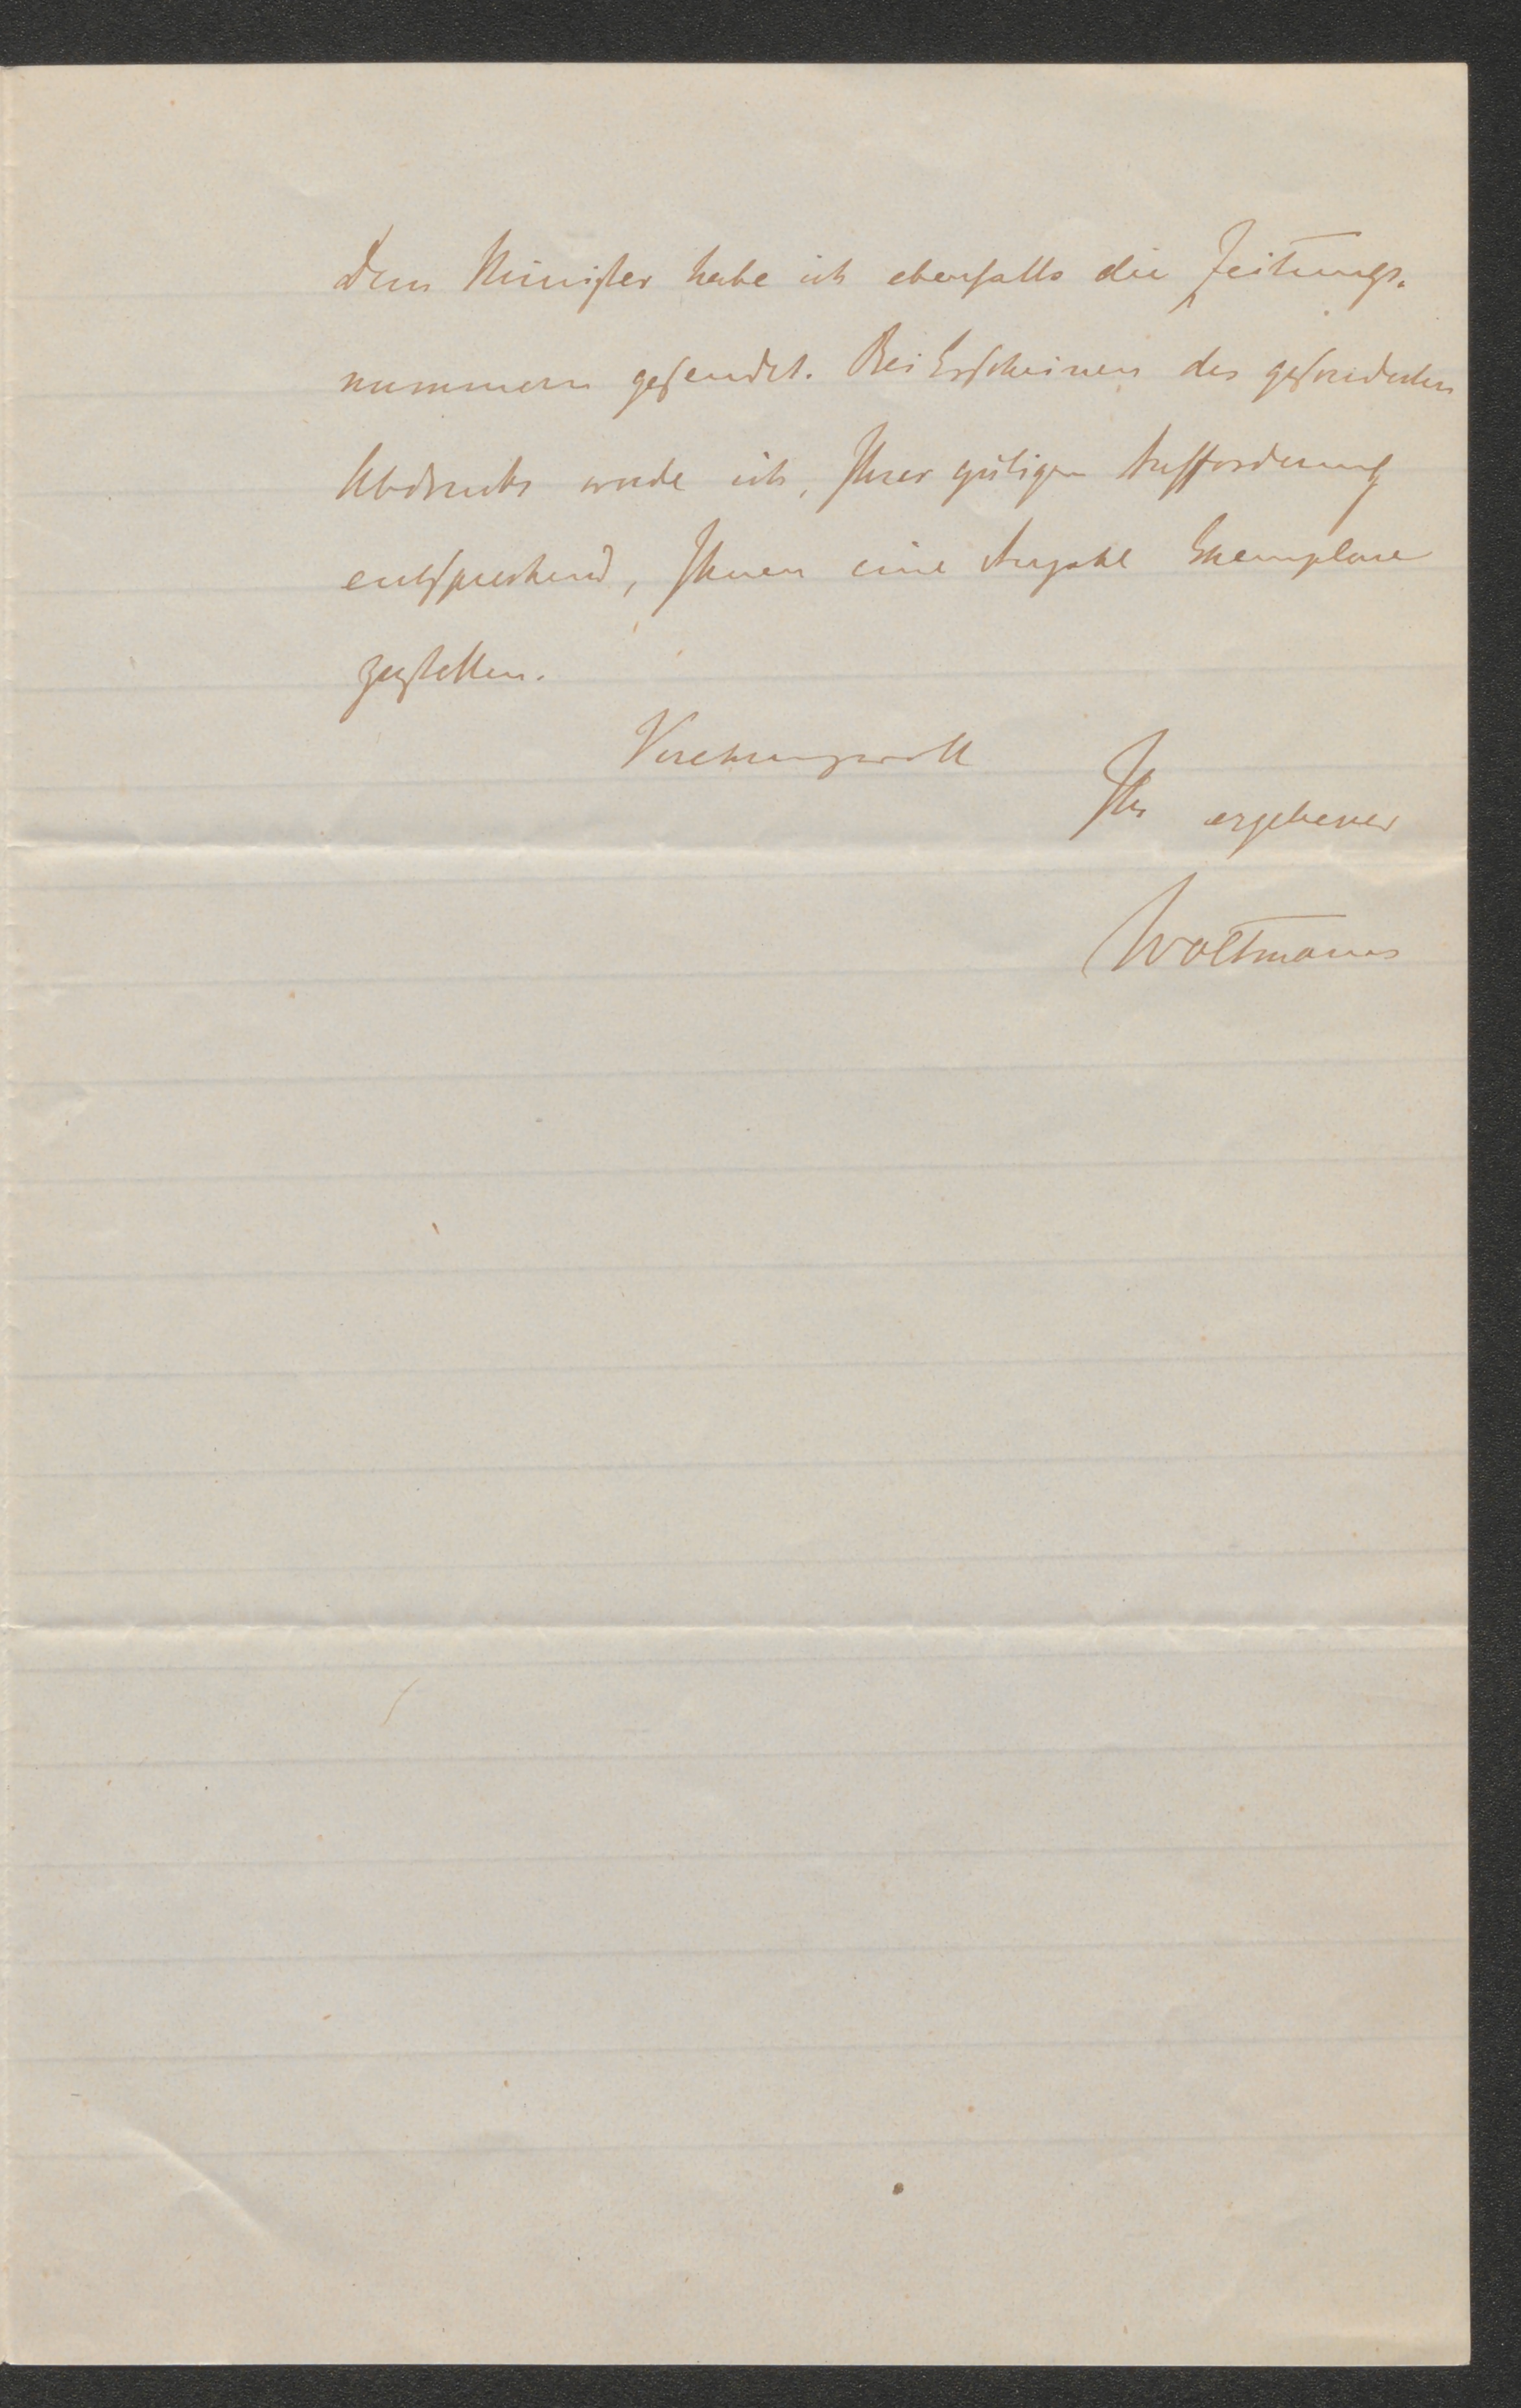 Dem Minister habe ich ebenfalls die Zeitungs-
nummern gesendet. Bei Erscheinen des gesonderten
Abdrucks werde ich, Ihrer gütigen Aufforderung
entsprechend, Ihnen eine Anzahl Exemplare
zustellen.
Verehrungsvoll
Ihr ergebener
Woltmann